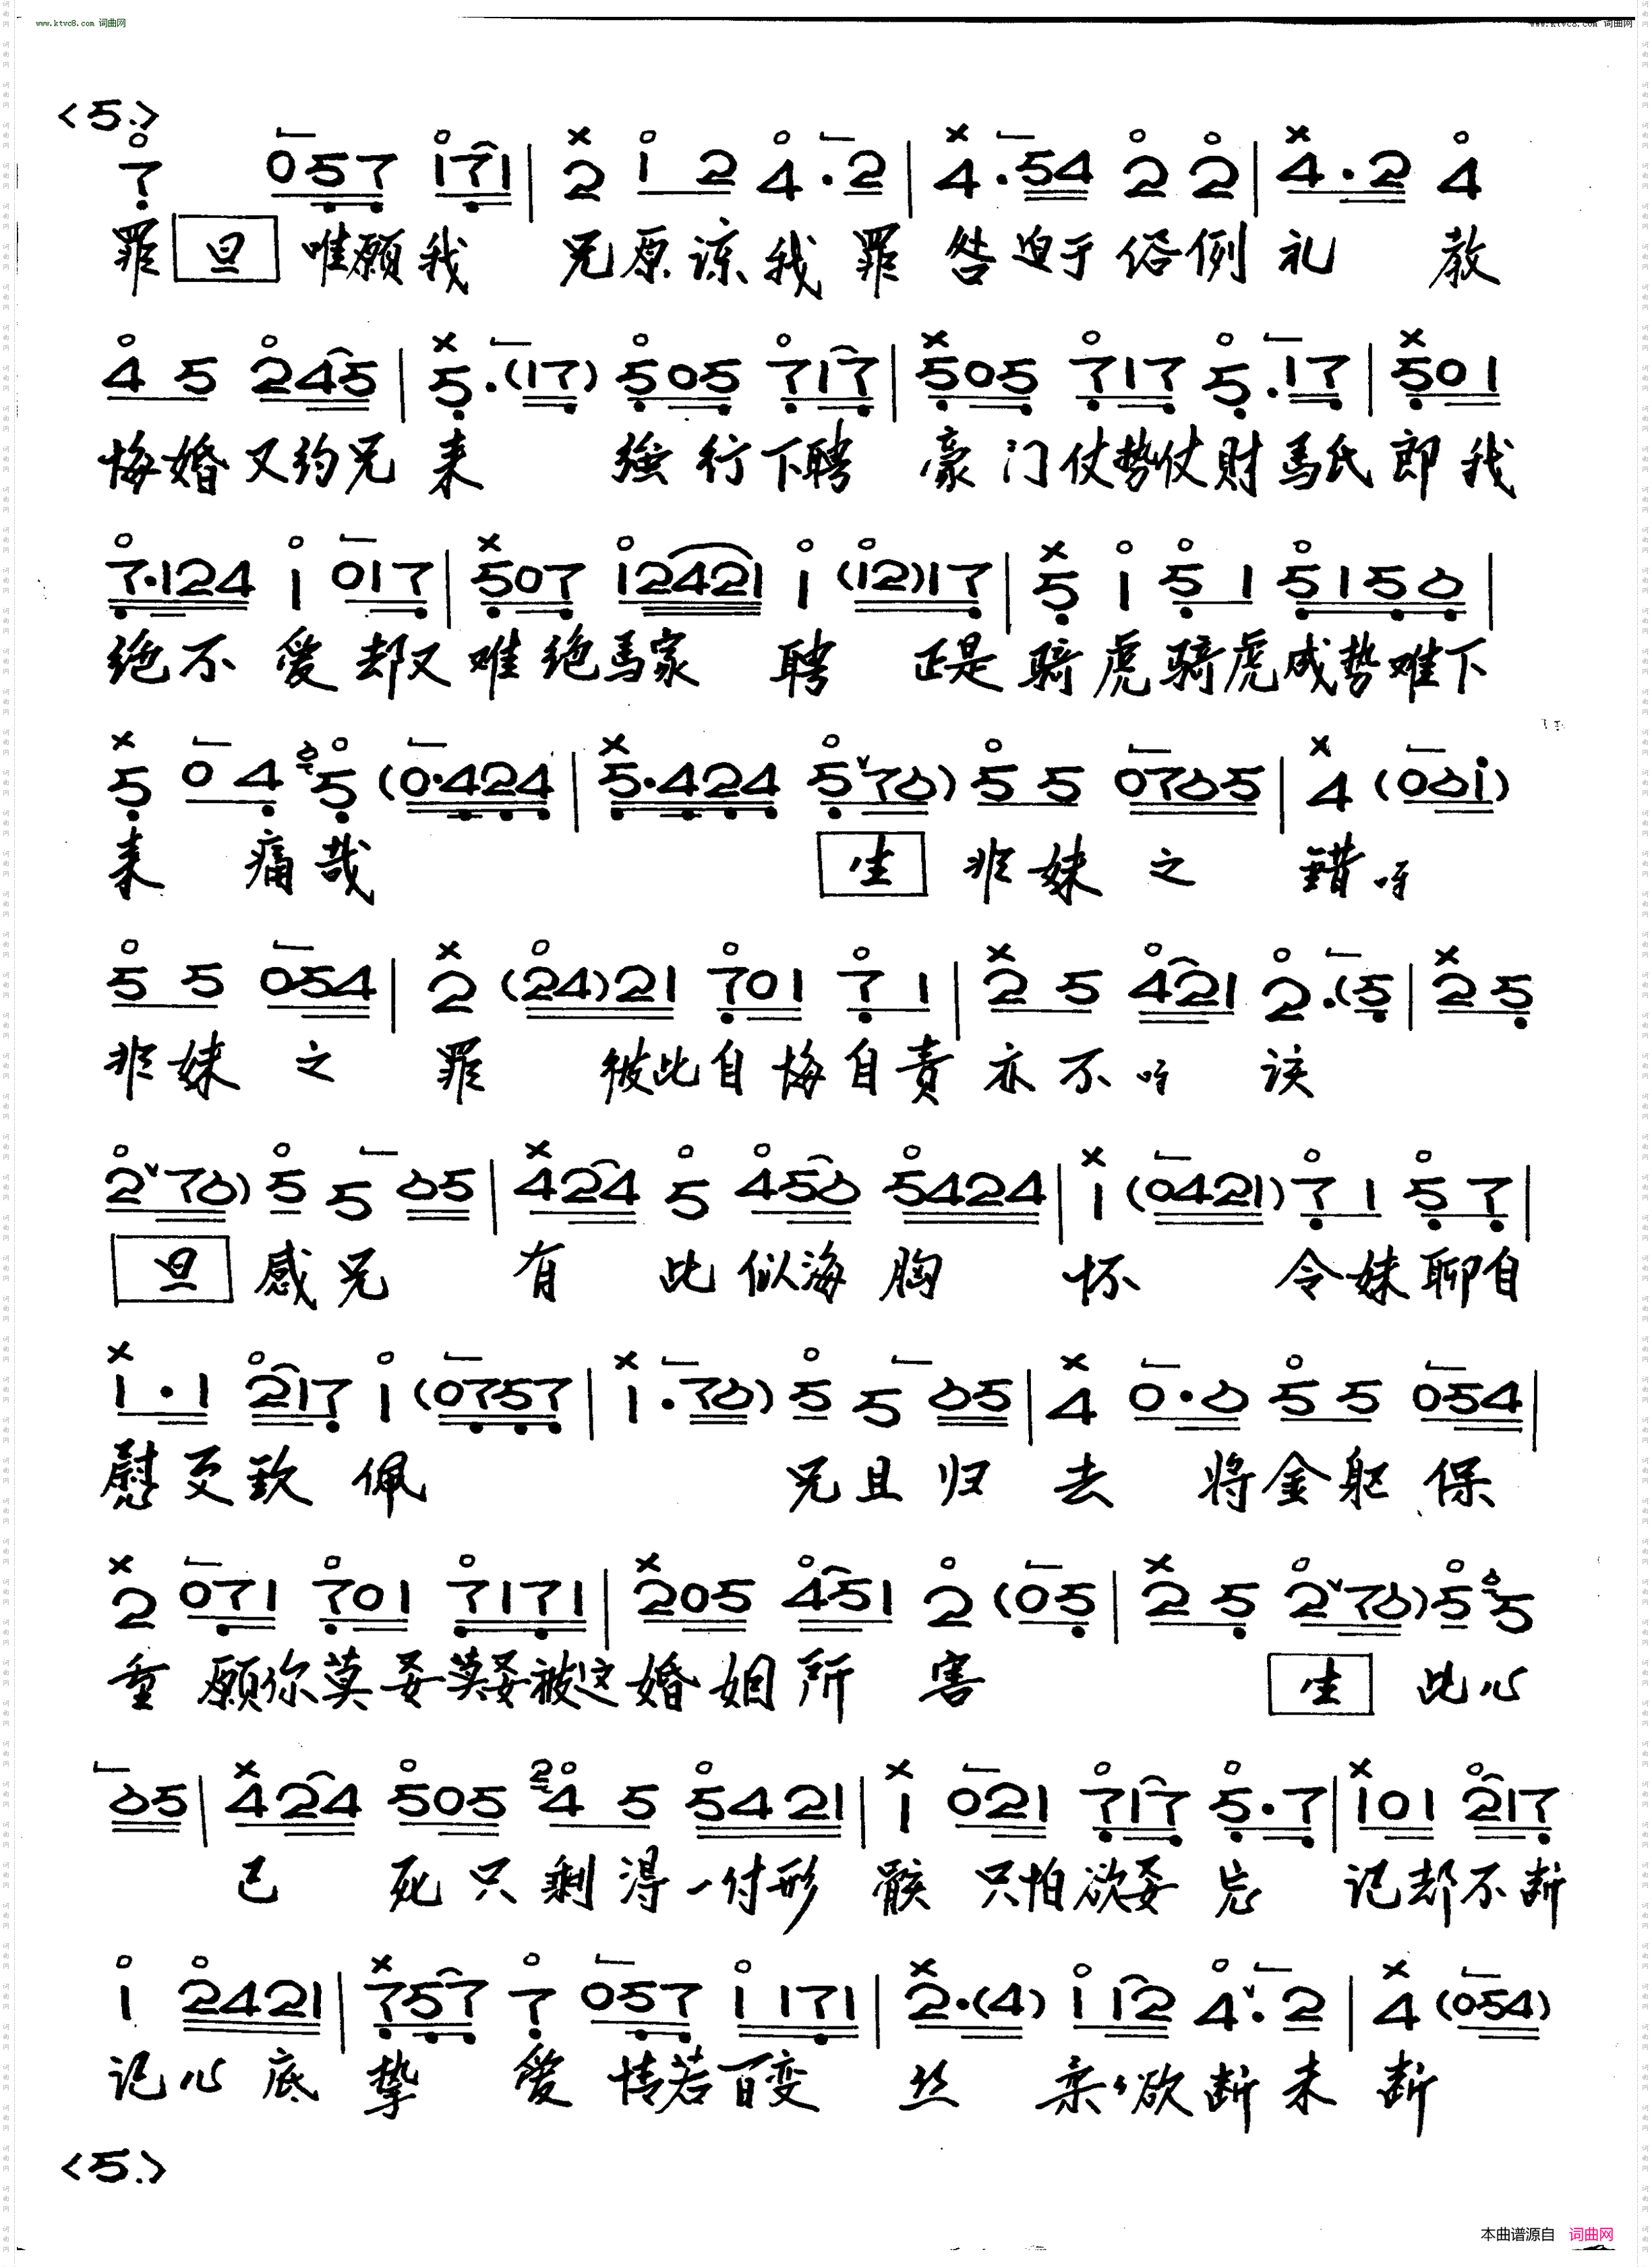 www.ktvc8.com 词曲网
www.ktvc8.com 词曲网
<5.>
7 057 171 | 2 1 2 4 · 2 | 4 · 54 2 2 | 4 · 2 4
罪 旦 唯願我 兄原谅我罪 咎迫于俗例礼 教
4 5 245 | 5 · (17) 505 717 | 505 717 5 · 17 | 501
悔婚又约兄来 強行下聘 豪门仗势仗財馬氏郎我
7·124 1 017 | 507 12421 1 (12)17 | 5 1 5 1 5156 |
绝不爱却又难绝馬家 聘 正是騎虎騎虎成势难下
5 0 4 6 5 (0·424 | 5·424 5 76) 5 5 0765 | 4 (061)
来 痛哉 生 非妹之 錯呀
5 5 054 | 2 (24)21 701 7 1 | 2 5 421 2 · (5 | 2 5
非妹之 罪 彼此自悔自责亦不吀 该
2 76) 5 5 65 | 424 5 456 5424 | 1 (0421) 7 1 5 7 |
旦 感兄 有 此似海胸 怀 令妹聊自
1 · 1 217 1 (0757 | 1 · 76) 5 5 65 | 4 0 · 6 5 5 054 |
慰更致佩 兄且归 去 将金躯保
2 071 701 7171 | 205 451 2 (05 | 2 5 2 76) 5 6 5
重 願你莫妥莫妥被这婚姻所 害 生 此心
65 | 424 505 2 4 5 5421 | 1 021 717 5 · 7 | 101 217
已 死只剩得一付形 骸 只怕欲妥忘 记却不断
1 2421 | 757 7 057 1 171 | 2·(4) 1 12 4 · 2 | 4 (054)
记心底 挚 爱 情若百变 丝 亲欲断未 断
<5.>
本曲谱源自 词曲网